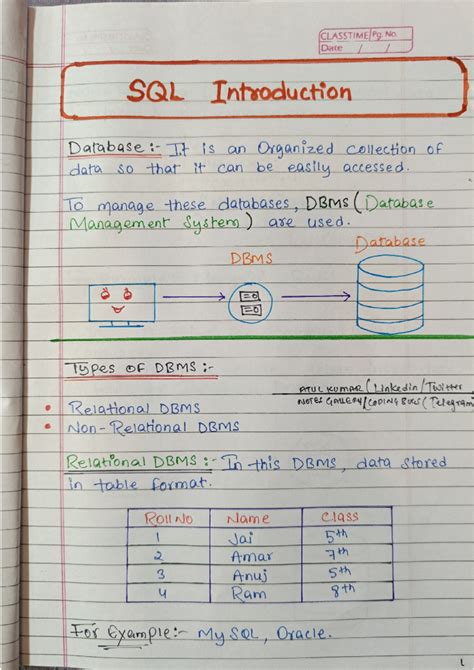 CLASSTIME Pg. No.
Date / /
SQL Introduction
Database :- It is an Organized collection of
data so that it can be easily accessed.
To manage these databases, DBMS (Database
Management System) are used.
Database
DBMS
Types of DBMS :-
ATUL KUMAR (Linkedin/Twitter
NOTES GALLERY/CODING BUGS (Telegram
• Relational DBMS
• Non-Relational DBMS
Relational DBMS :- In this DBMS, data stored
in table format.
Roll No Name Class
1 Jai 5th
2 Amar 7th
3 Anuj 5th
4 Ram 8th
For Example:- MySQL, Oracle.